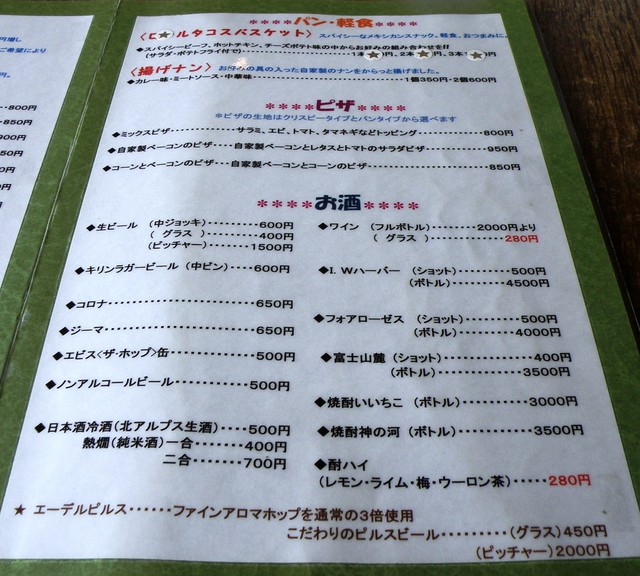 円増し
ご希望により
円。
800円
850円
900円
50円
0円
円
円
＊＊＊＊パン・軽食＊＊＊＊
ルタコスバスケット〉 スパイシーなメキシカンスナック。軽食、おつまみに。
◆スパイシービーフ、ホットチキン、チーズポテト味の中からお好みの組み合わせを!!
(サラダ・ポテトフライ付で)‥‥‥‥1本 円、2本 円、3本 円
〈揚げナン〉 お好みの具の入った自家製のナンをからっと揚げました。
◆カレー味・ミートソース・中華味‥‥‥‥1個350円・2個600円
＊＊＊＊ピザ＊＊＊＊
＊ピザの生地はクリスピータイプとパンタイプから選べます
◆ミックスピザ‥‥‥‥サラミ、エビ、トマト、タマネギなどトッピング‥‥‥‥800円
◆自家製ベーコンのピザ‥‥自家製ベーコンとレタスとトマトのサラダピザ‥‥‥‥950円
◆コーンとベーコンのピザ‥‥自家製ベーコンとコーンのピザ‥‥‥‥850円
＊＊＊＊お酒＊＊＊＊
◆生ビール (中ジョッキ)‥‥‥‥600円
( グラス )‥‥‥‥400円
(ピッチャー)‥‥‥‥1500円
◆キリンラガービール (中ビン)‥‥600円
◆コロナ‥‥‥‥650円
◆ジーマ‥‥‥‥650円
◆エビス<ザ・ホップ>缶‥‥‥‥500円
◆ノンアルコールビール‥‥‥‥500円
◆日本酒冷酒(北アルプス生酒)‥‥‥500円
熱燗(純米酒)一合‥‥‥400円
二合‥‥‥700円
◆ワイン (フルボトル)‥‥‥‥2000円より
( グラス )‥‥‥‥280円
◆I.Wハーバー (ショット)‥‥‥‥500円
(ボトル)‥‥‥‥4500円
◆フォアローゼス (ショット)‥‥‥‥500円
(ボトル)‥‥‥‥4000円
◆富士山麓 (ショット)‥‥‥‥400円
(ボトル)‥‥‥‥3500円
◆焼酎いいちこ (ボトル)‥‥‥‥3000円
◆焼酎神の河 (ボトル)‥‥‥‥3500円
◆酎ハイ
(レモン・ライム・梅・ウーロン茶)‥‥‥280円
★ エーデルピルス‥‥‥ファインアロマホップを通常の3倍使用
こだわりのピルスビール‥‥‥‥(グラス)450円
(ピッチャー)2000円